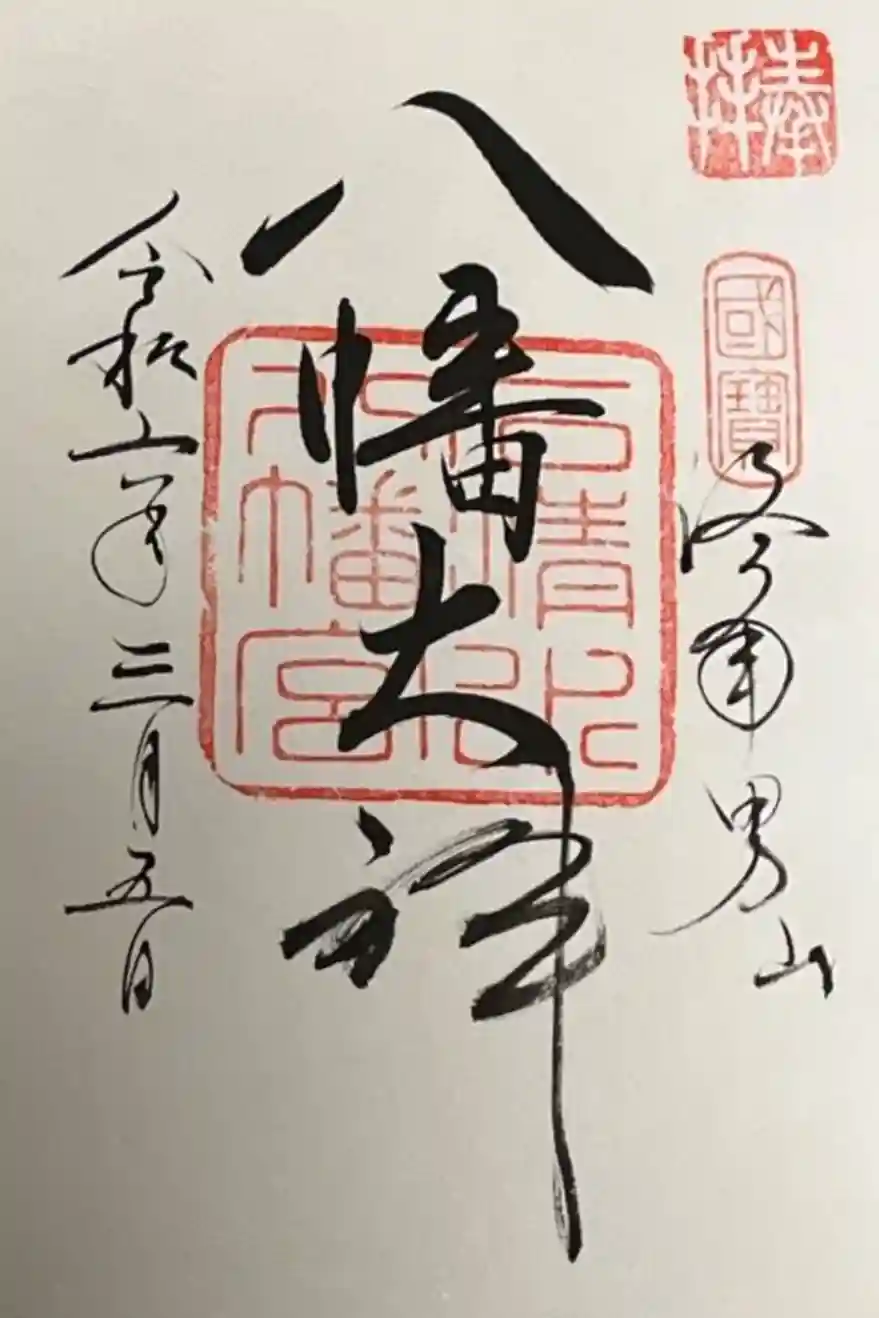 奉拝
國寶
洛南 男山
八幡大神
石清水
八幡宮
令和六年三月五日